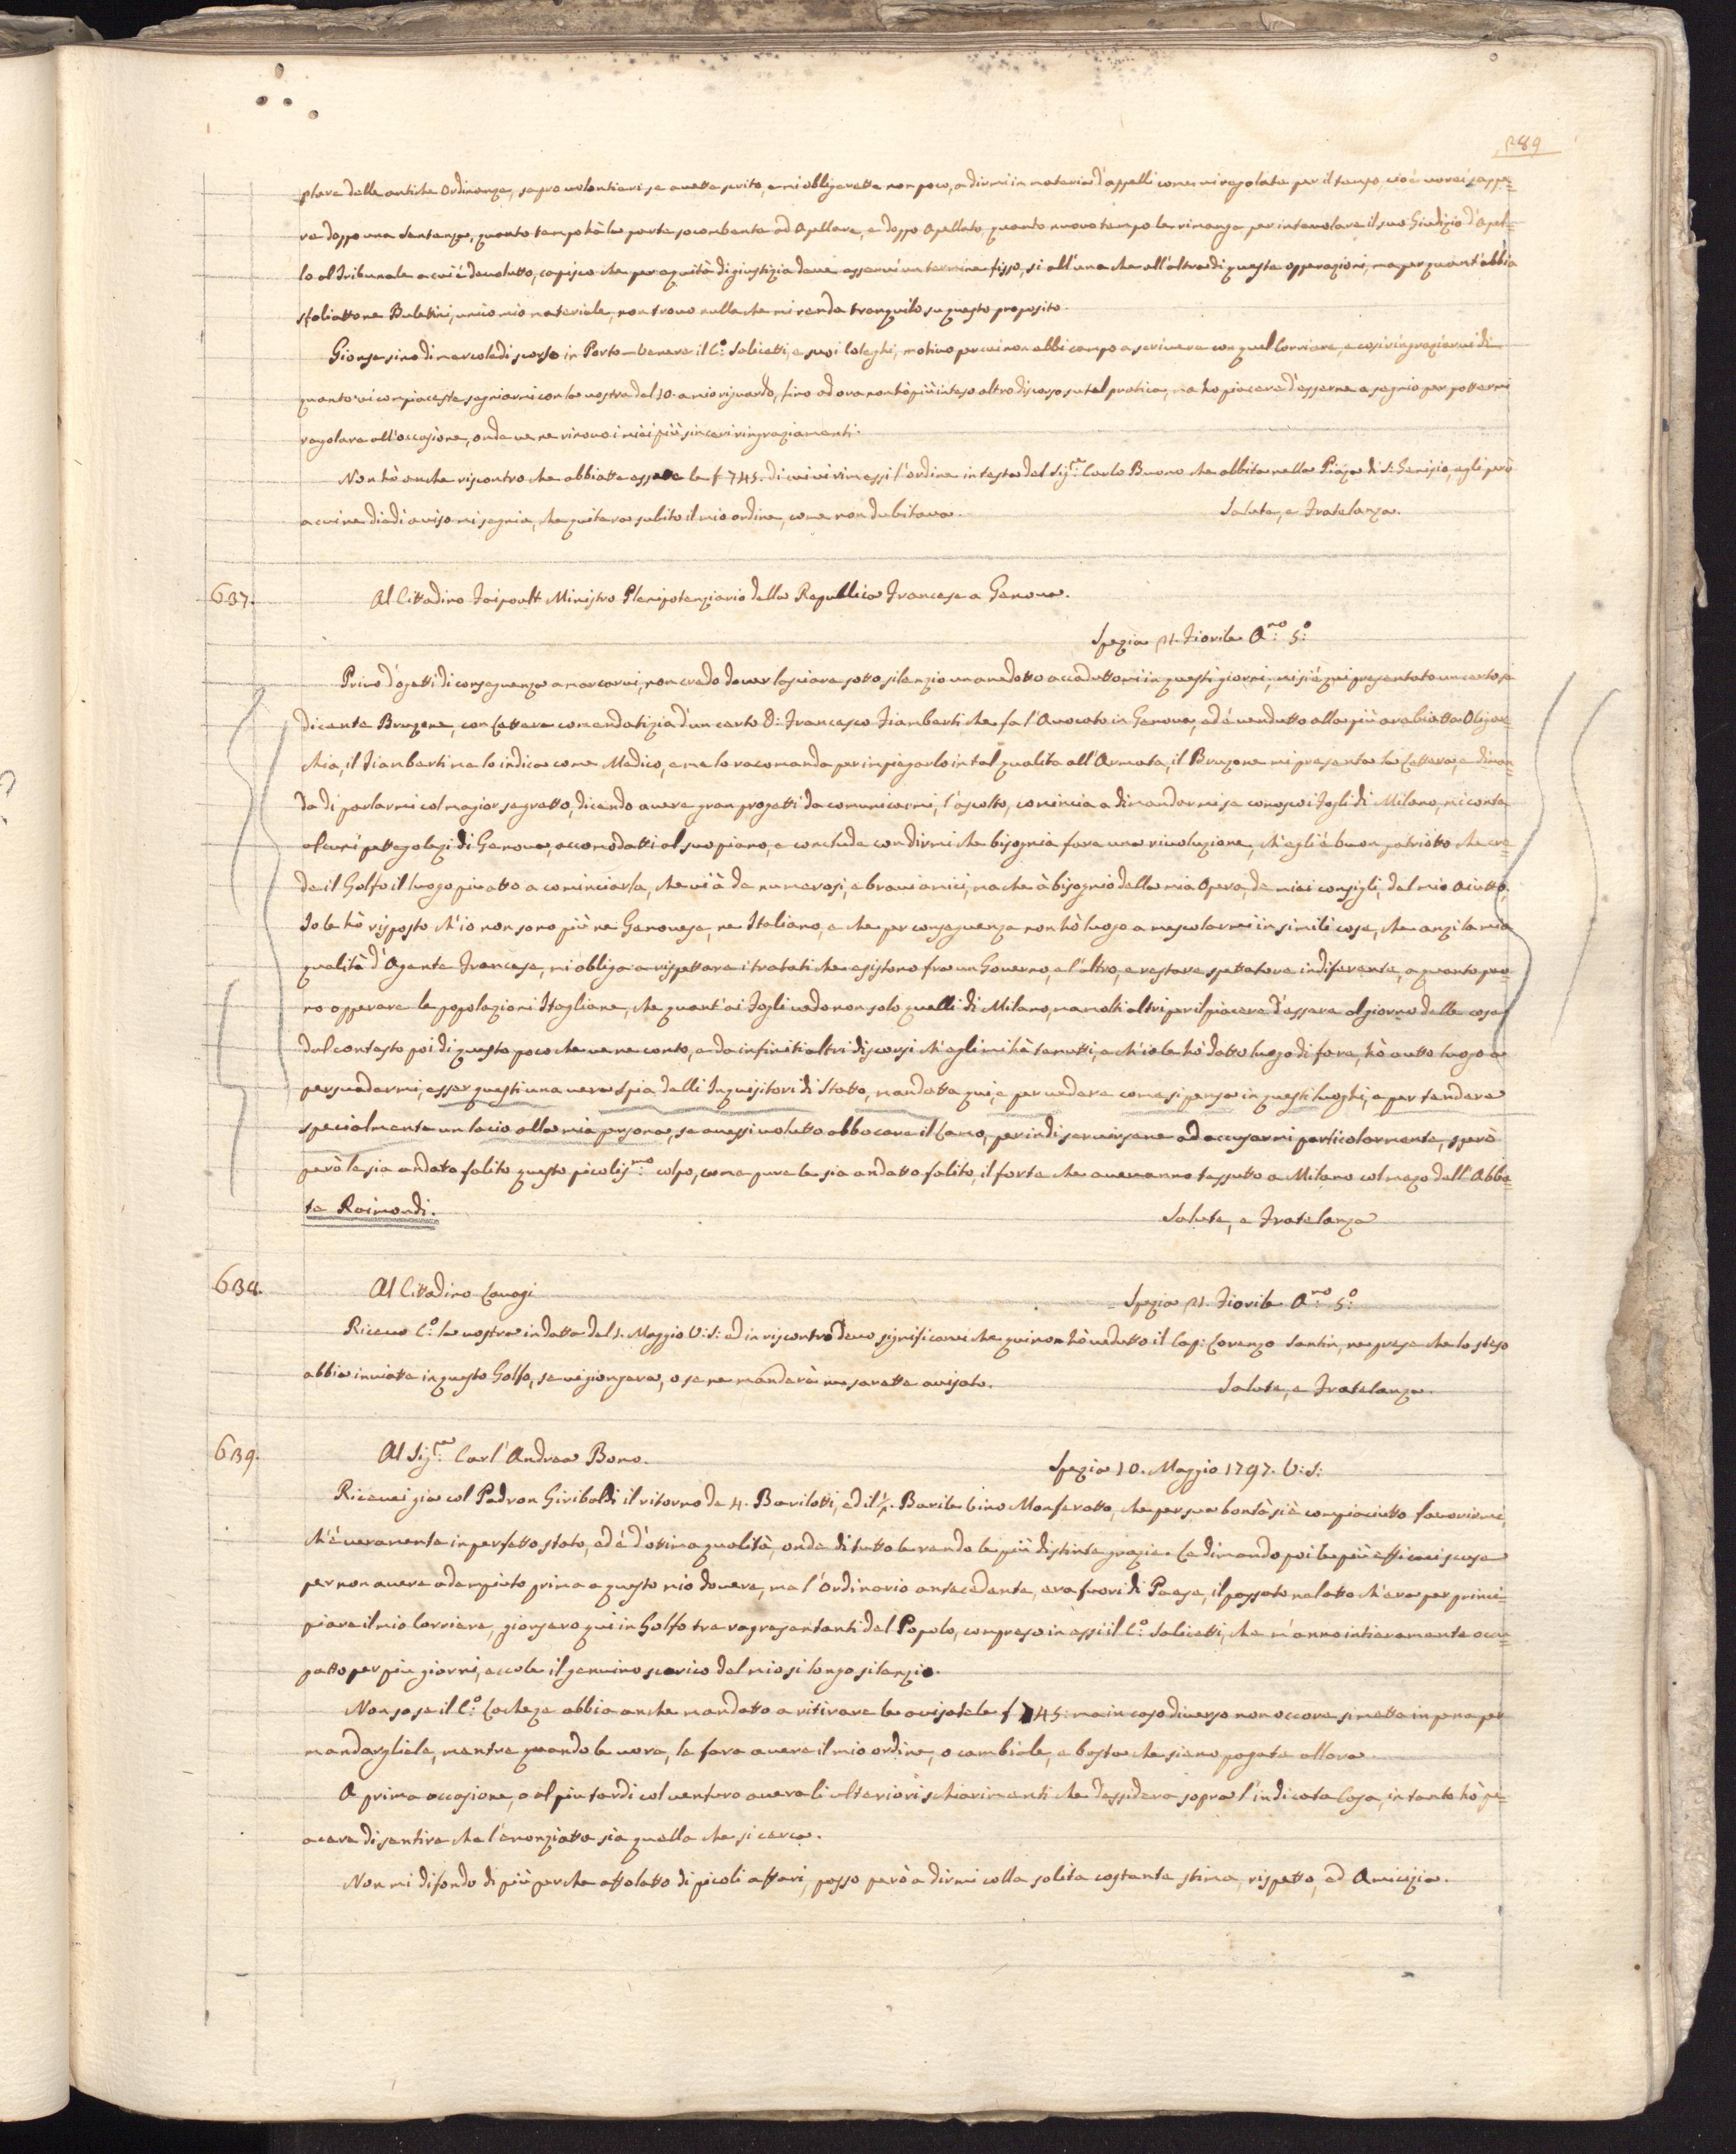 289
plare delle antiche Ordinanze, sapro volontieri se avette scrito, e mi obligarette non poco, a dirmi in materia d'appelli come vi regolate per il tempo, cioè vorei sappe-
re doppo una Sentenza, quanto tempo hà la parte socombente ad Apellare, e doppo Apellato quanto nuovo tempo le rimanga per intavolare il suo Giudizio d'Apel-
lo al Tribunale a cui è devolutto, capisco che per equità di giustizia deve esservi un termine fisso, si all'una che all'altra di queste opperazioni, ma per quant'abbia
sfoliatto ne Bulettini, unico mio materiale, non trovo nulla che mi renda tranquilo su questo proposito.
Gionse sino di mercoledi scorso in Porto-Venere il C.º Salicetti, e suoi Coleghi, motivo per cui non ebbi campo a scrivere con quel Corriere, e cosi ringraziarvi di
quanto vi compiaceste segniarmi con la vostra del 10. a mio riguardo, sino ad ora non hò più inteso altro discorso su tal pratica, ma ho piacere d'esserne a segnio per potermi
regolare all'occasione, onde ve ne rinovo i miei più sinceri ringraziamenti.
Non hò anche riscontro che abbiatte esatte le f 745. di cui vi rimessi l'ordine in testa del Sig.re Carlo Buono che abbita nella Piaza di S: Genisio, egli però
a cui ne diedi aviso mi segnia, che quitera subito il mio ordine, come non dubitavo. Salute, e Fratelanza.
637. Al Cittadino Faipoult Ministro Plenipotenziario della Republica Francese a Genova.
Spezia 21. Fiorile A.no 5.º
Privo d'ogetti di conseguenza a marcarvi, non credo dover lasciare sotto silenzio un anedotto accaduttomi in questi giorni, mi si è qui presentato un certo si
dicente Bruzone, con Lettera comendatizia d'un certo D: Francesco Fiamberti che fa l'Avocato in Genova, ed è vendutto alla più arabiatta Oligar-
chia, il Fiamberti me lo indica come Medico, e me lo racomanda per impiegarlo in tal qualita all'Armata, il Bruzone mi presenta la Lettera, e diman-
da di parlarmi col magior segretto, dicendo avere gran progetti da comunicarmi, l'ascolto, comincia a dimandarmi se conosco i Fogli di Milano, mi conta
alcuni pettegolezi di Genova, accomodatti al suo piano, e conclude con dirmi che bisognia fare una rivoluzione, ch'egli è buon patriotto che cre-
de il Golfo il luogo piu atto a cominciarla, che vi à de numerosi, e bravi amici, ma che à bisognio della mia Opera, de miei consigli, del mio aiutto,
Io le hò risposto ch'io non sono più ne Genovese, ne Italiano, e che per conseguenza non hò luogo a mescolarmi in simili cose, che anzi la mia
qualità d'Agente Francese, mi obliga a rispettare i tratati che esistono fra un Governo, e l'altro, e restare spettatore indiferente, a quanto pos-
no opperare le popolazioni Itagliane, che quant'ai Fogli vedo non solo quelli di Milano, ma molti altri per il piacere d'essere al giorno delle cose
dal contesto poi di questo poco che ve ne conto, e da infiniti altri discorsi ch'egli mi hà tenutti, e ch'io le hò datto luogo di fare, hò autto luogo a
persuadermi, esser questi una vera Spia delli Inquisitori di Statto, mandatta qui, e per vedere come si pensa in questi luoghi, e per tendere
specialmente un lacio alla mia persona, se avessi volutto abbocare il Lamo, per indi servirsene ad accusarmi particolarmente, sperò
però le sia andato falito questo picolis.mo colpo, come pure le sia andatto falito, il forte che avevanno tessutto a Milano col mezo dell'Abba-
te Raimondi. Salute, e Fratelanza
638. Al Cittadino Cavagi Spezia 21. Fiorile A.no 5.º
Ricevo C.º la vostra in datta del 1. Maggio V: S: ed in riscontro devo significarvi che qui non hò vedutto il Cap: Lorenzo Santin, ne prese che lo steso
abbia inviatte in questo Golfo, se vi gionsero, o se ne manderà ne sarette avisato. Salute, e Fratelanza.
639. Al Sig.re Carl'Andrea Bono. Spezia 10. Maggio 1797. V: S:
Ricevei già col Padron Giribaldi il ritorno de 4. Barilotti, ed il ½. Barile Vino Monferatto, che per sua bontà si è compiaciutto favorirmi,
ch'è veramente in perfetto stato, ed è d'ottima qualità, onde di tutto le rendo le più distinte grazie. Le dimando poi le più efficaci scuse
per non avere adempiuto prima a questo mio dovere, ma l'Ordinario antecedente, ero fuori di Paese, il passato nel atto ch'ero per princi-
piare il mio Corriere, gionsero qui in Golfo tre rapresentanti del Popolo, compreso in essi il C.º Salicetti, che m'anno intieramente occu-
patto per piu giorni, eccole il genuino scarico del mio si longo silenzio.
Non so se il C.º Lacheze abbia anche mandatto a ritirare le avisatele f 745: ma in caso diverso non occore si metta in pena per
mandargliele, mentre quando le vora, le fara avere il mio ordine, o cambiale, e basta che sieno pagate allora.
A prima occasione, o al piu tardi col venturo avera li ulteriori schiarimenti che dessidera sopra l'indicata Casa, in tanto hò pi-
acere di sentire che l'enonziatta sia quella che si cerca.
Non mi difondo di più perche affolatto di picoli affari, posso però a dirmi colla solita costante stima, rispetto, ed Amicizia.